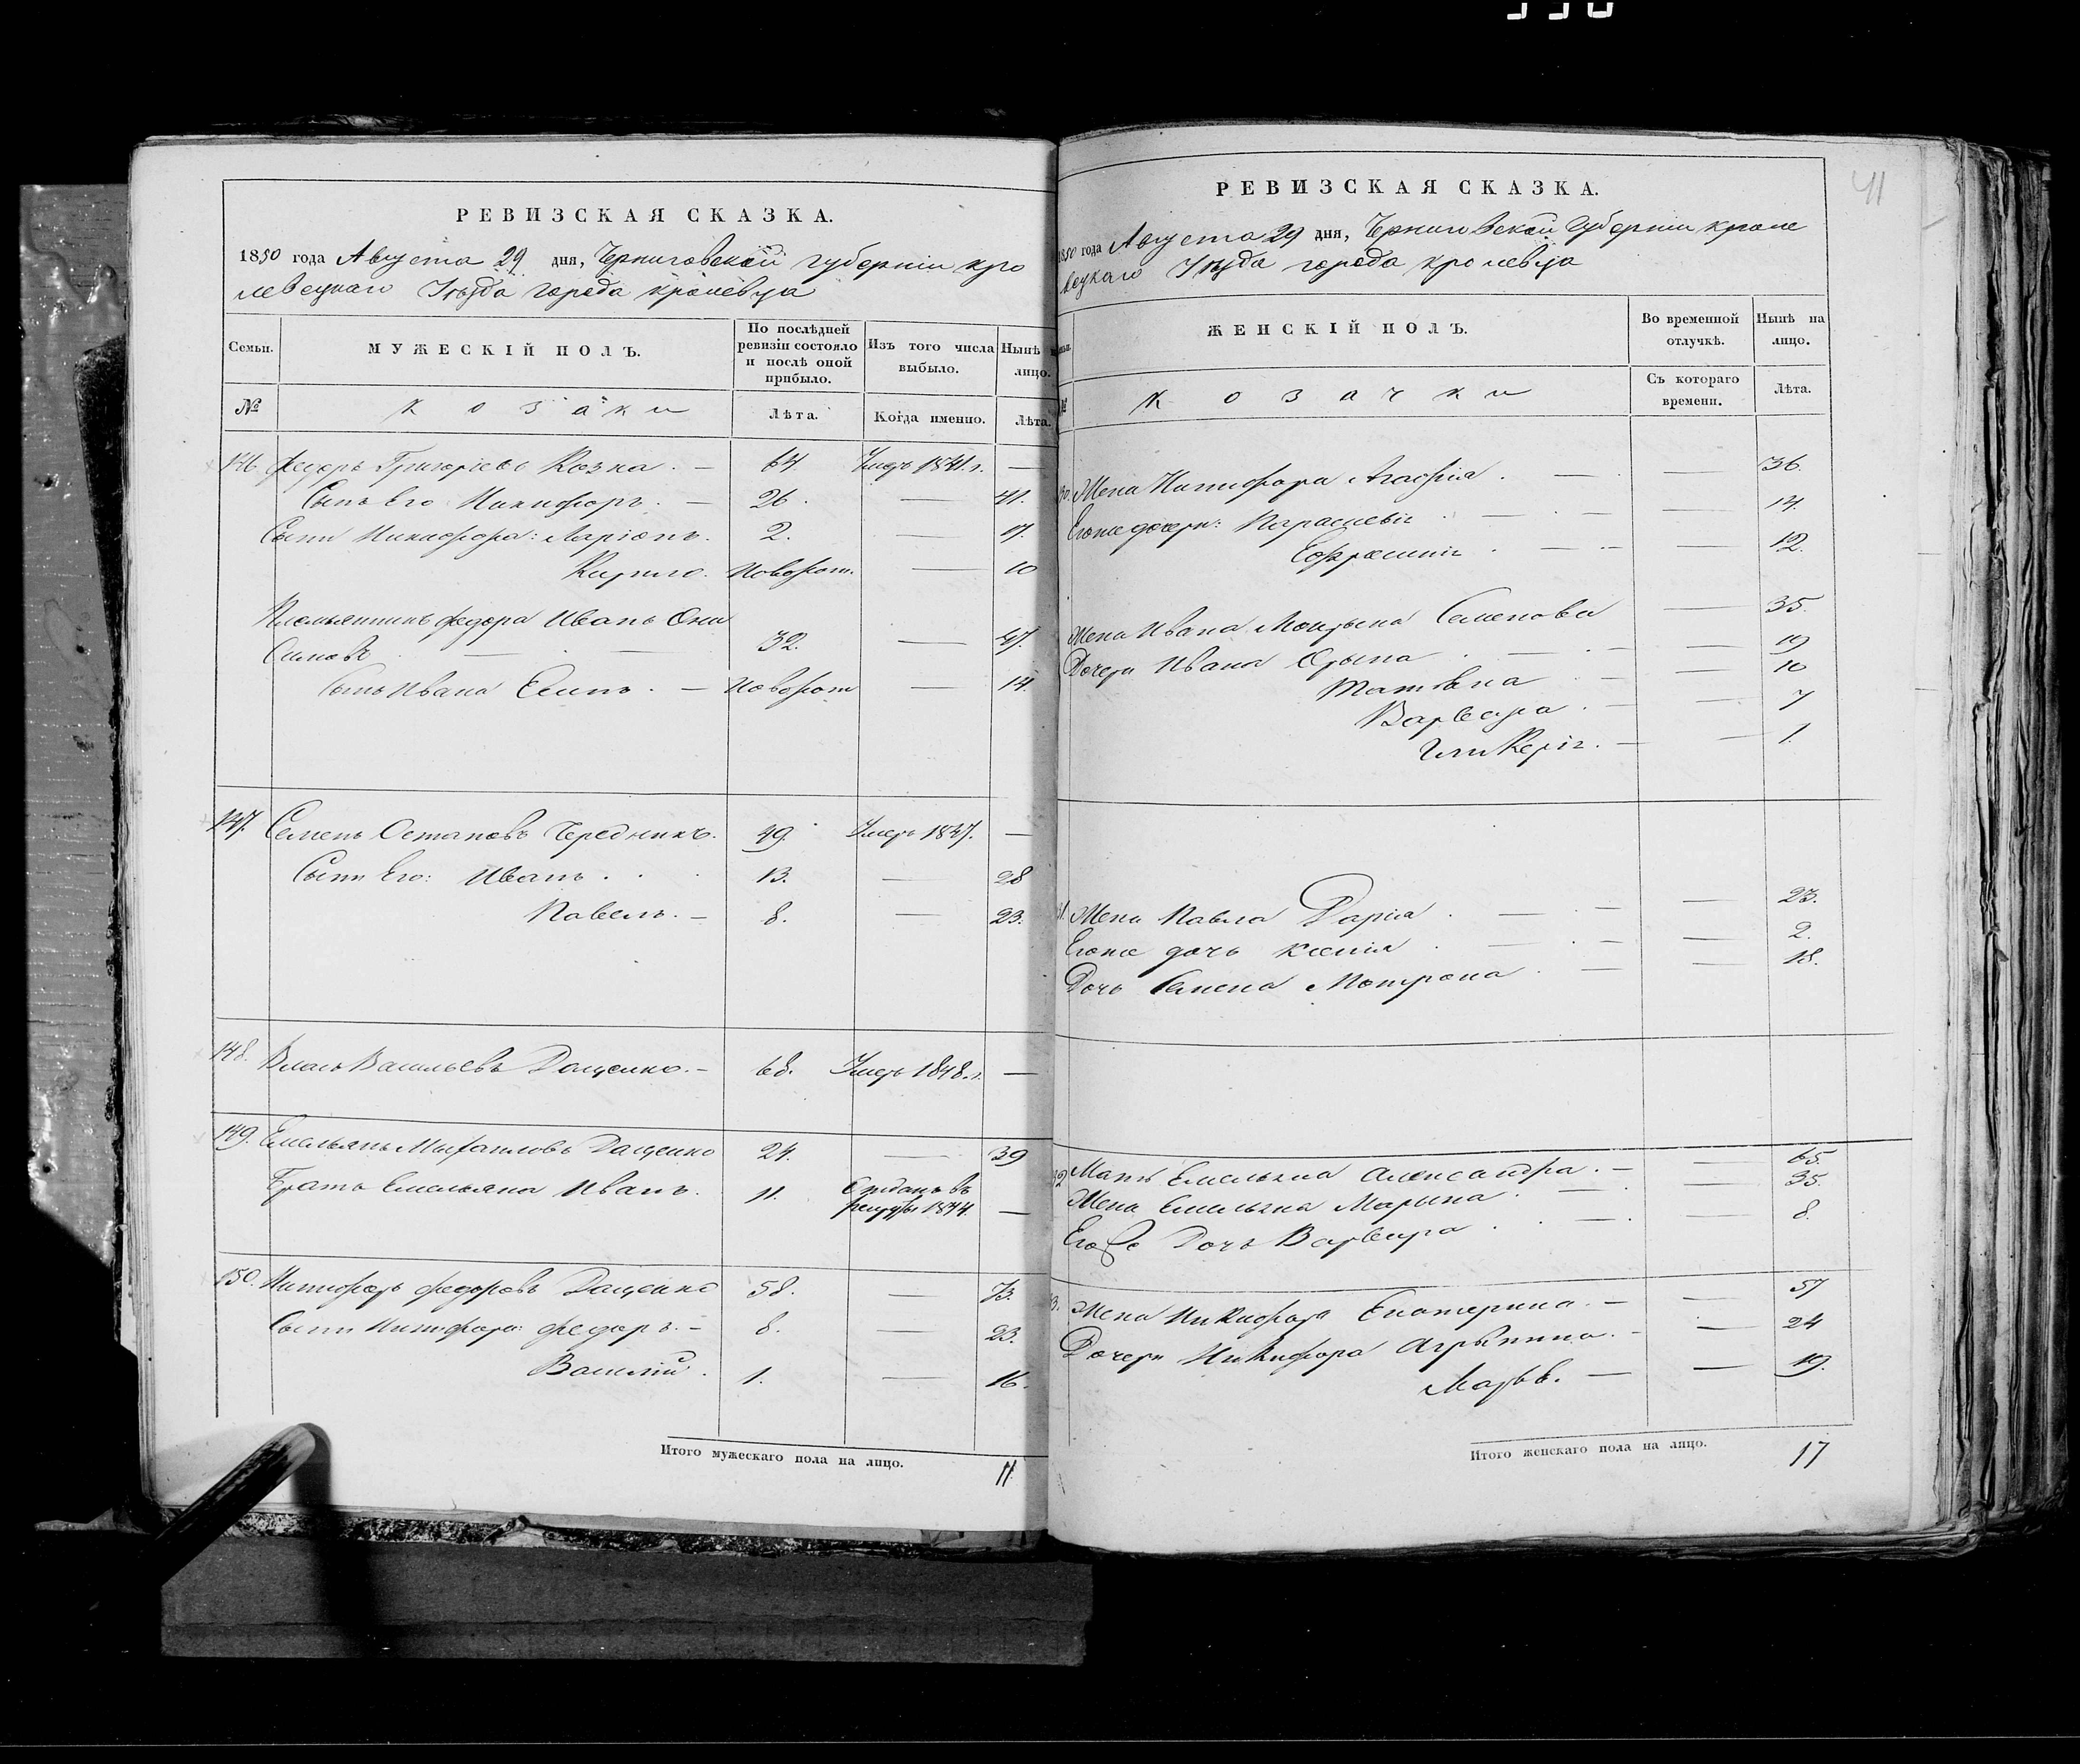 РЕВИЗСКАЯ СКАЗКА.
1850 года Августа 29 дня, Черниговской губерніи кро
левецкаго Уѣзда города кролевца
Семьи.
МУЖЕСКІЙ ПОЛЪ.
По послѣдней ревизіи состояло и послѣ оной прибыло.
Изъ того числа выбыло.
Нынѣ на лицо.
№
козаки
Лѣта.
Когда именно.
Лѣта.
146. Федоръ Григоріевъ Козка. — 64 Умеръ 1841 г. —
Сынъ Его Никифоръ. — 26. — 41.
Сыни Никифора: Ларіонъ. 2. — 17.
Кирило. Новорож. — 10
Племянникъ Федора Иванъ Они
симовъ — 32. — 47.
Сынъ Ивана Есипъ. — Новорож — 14.
147. Семенъ Остаповъ Чередникъ. 49. Умеръ 1837. —
Сыни Его: Иванъ. 13. — 28
Павелъ. — 8. — 23.
148. Власъ Васильевъ Дащенко. — 68. Умеръ 1848. г. —
149. Емельянъ Михаиловъ Дащенко 24. — 39
Братъ Емельяна Иванъ. 11. Отданъ въ
рекруты 1844. —
150. Никифоръ Федоровъ Дащенко 58. — 73.
Сыни Никифора: Федоръ. — 8. — 23.
Василій. 1. — 16.
Итого мужескаго пола на лицо. 11
РЕВИЗСКАЯ СКАЗКА. 41
1850 года Августа 29 дня, Черниговской Губерніи кроле
вецкаго Уѣзда города кролевца
ЖЕНСКІЙ ПОЛЪ.
Во временной отлучкѣ.
Нынѣ на лицо.
№
козачки
Съ котораго времени.
Лѣта.
Жена Никифора Агафія. — — 36.
Егоже дочери: Парасковія — — 14.
Ефросинія. — — 12.
Жена Ивана Мотрына Семенова — 35.
Дочери Ивана Орына — — 19
Татіяна — — 10
Варвара. — — 7
Гликерія. — — 1.
Жена Павла Дарія. — — 23.
Егоже дочь Ксенія. — — 2.
Дочь Семена Мотрона. — — 18.
Мать Емельяна Александра. — — 65.
Жена Емельяна Марына. — — 35.
Егоже Дочь Варвара. — — 8.
Жена Никифора Екатерина. — — 57
Дочери Никифора Агрыпина. — — 24
Марья. — — 19.
Итого женскаго пола на лицо. 17